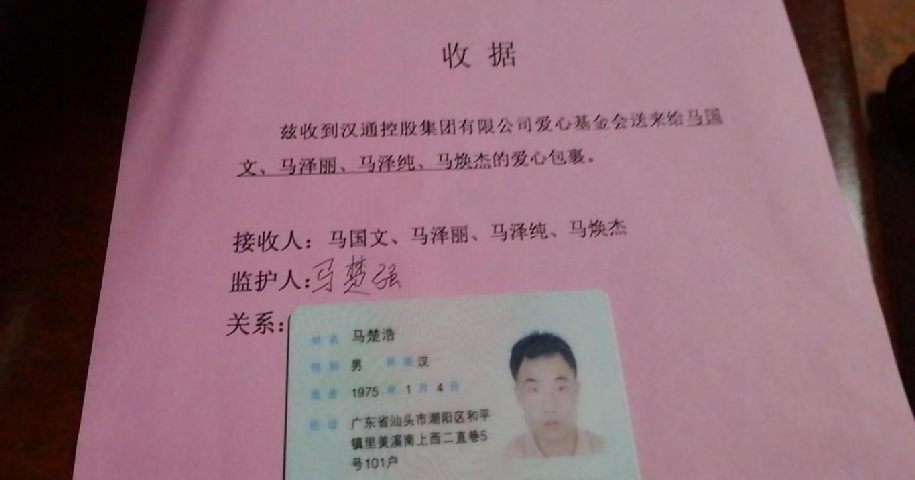 收据
兹收到汉通控股集团有限公司爱心基金会送来给马国
文、马泽丽、马泽纯、马焕杰的爱心包裹。
接收人：马国文、马泽丽、马泽纯、马焕杰
监护人：马楚强
关系：
姓名 马楚浩
性别 男 民族 汉
出生 1975 年 1 月 4 日
住址 广东省汕头市潮阳区和平
镇里美溪南上西二直巷5
号101户